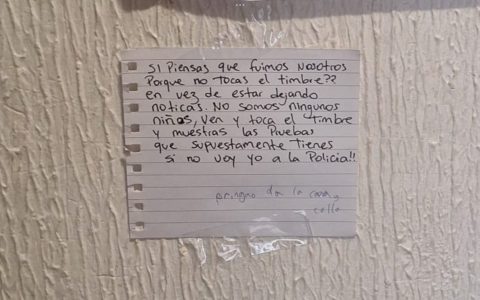 SI Piensas que fuimos Nosotros
Porque no tocas el timbre??
en vez de estar dejando
noticas. NO somos ningunos
niños, Ven y toca el timbre
y muestras las Pruebas
que supuestamente tienes
si no voy yo a la Policia!!
pringao da la cara